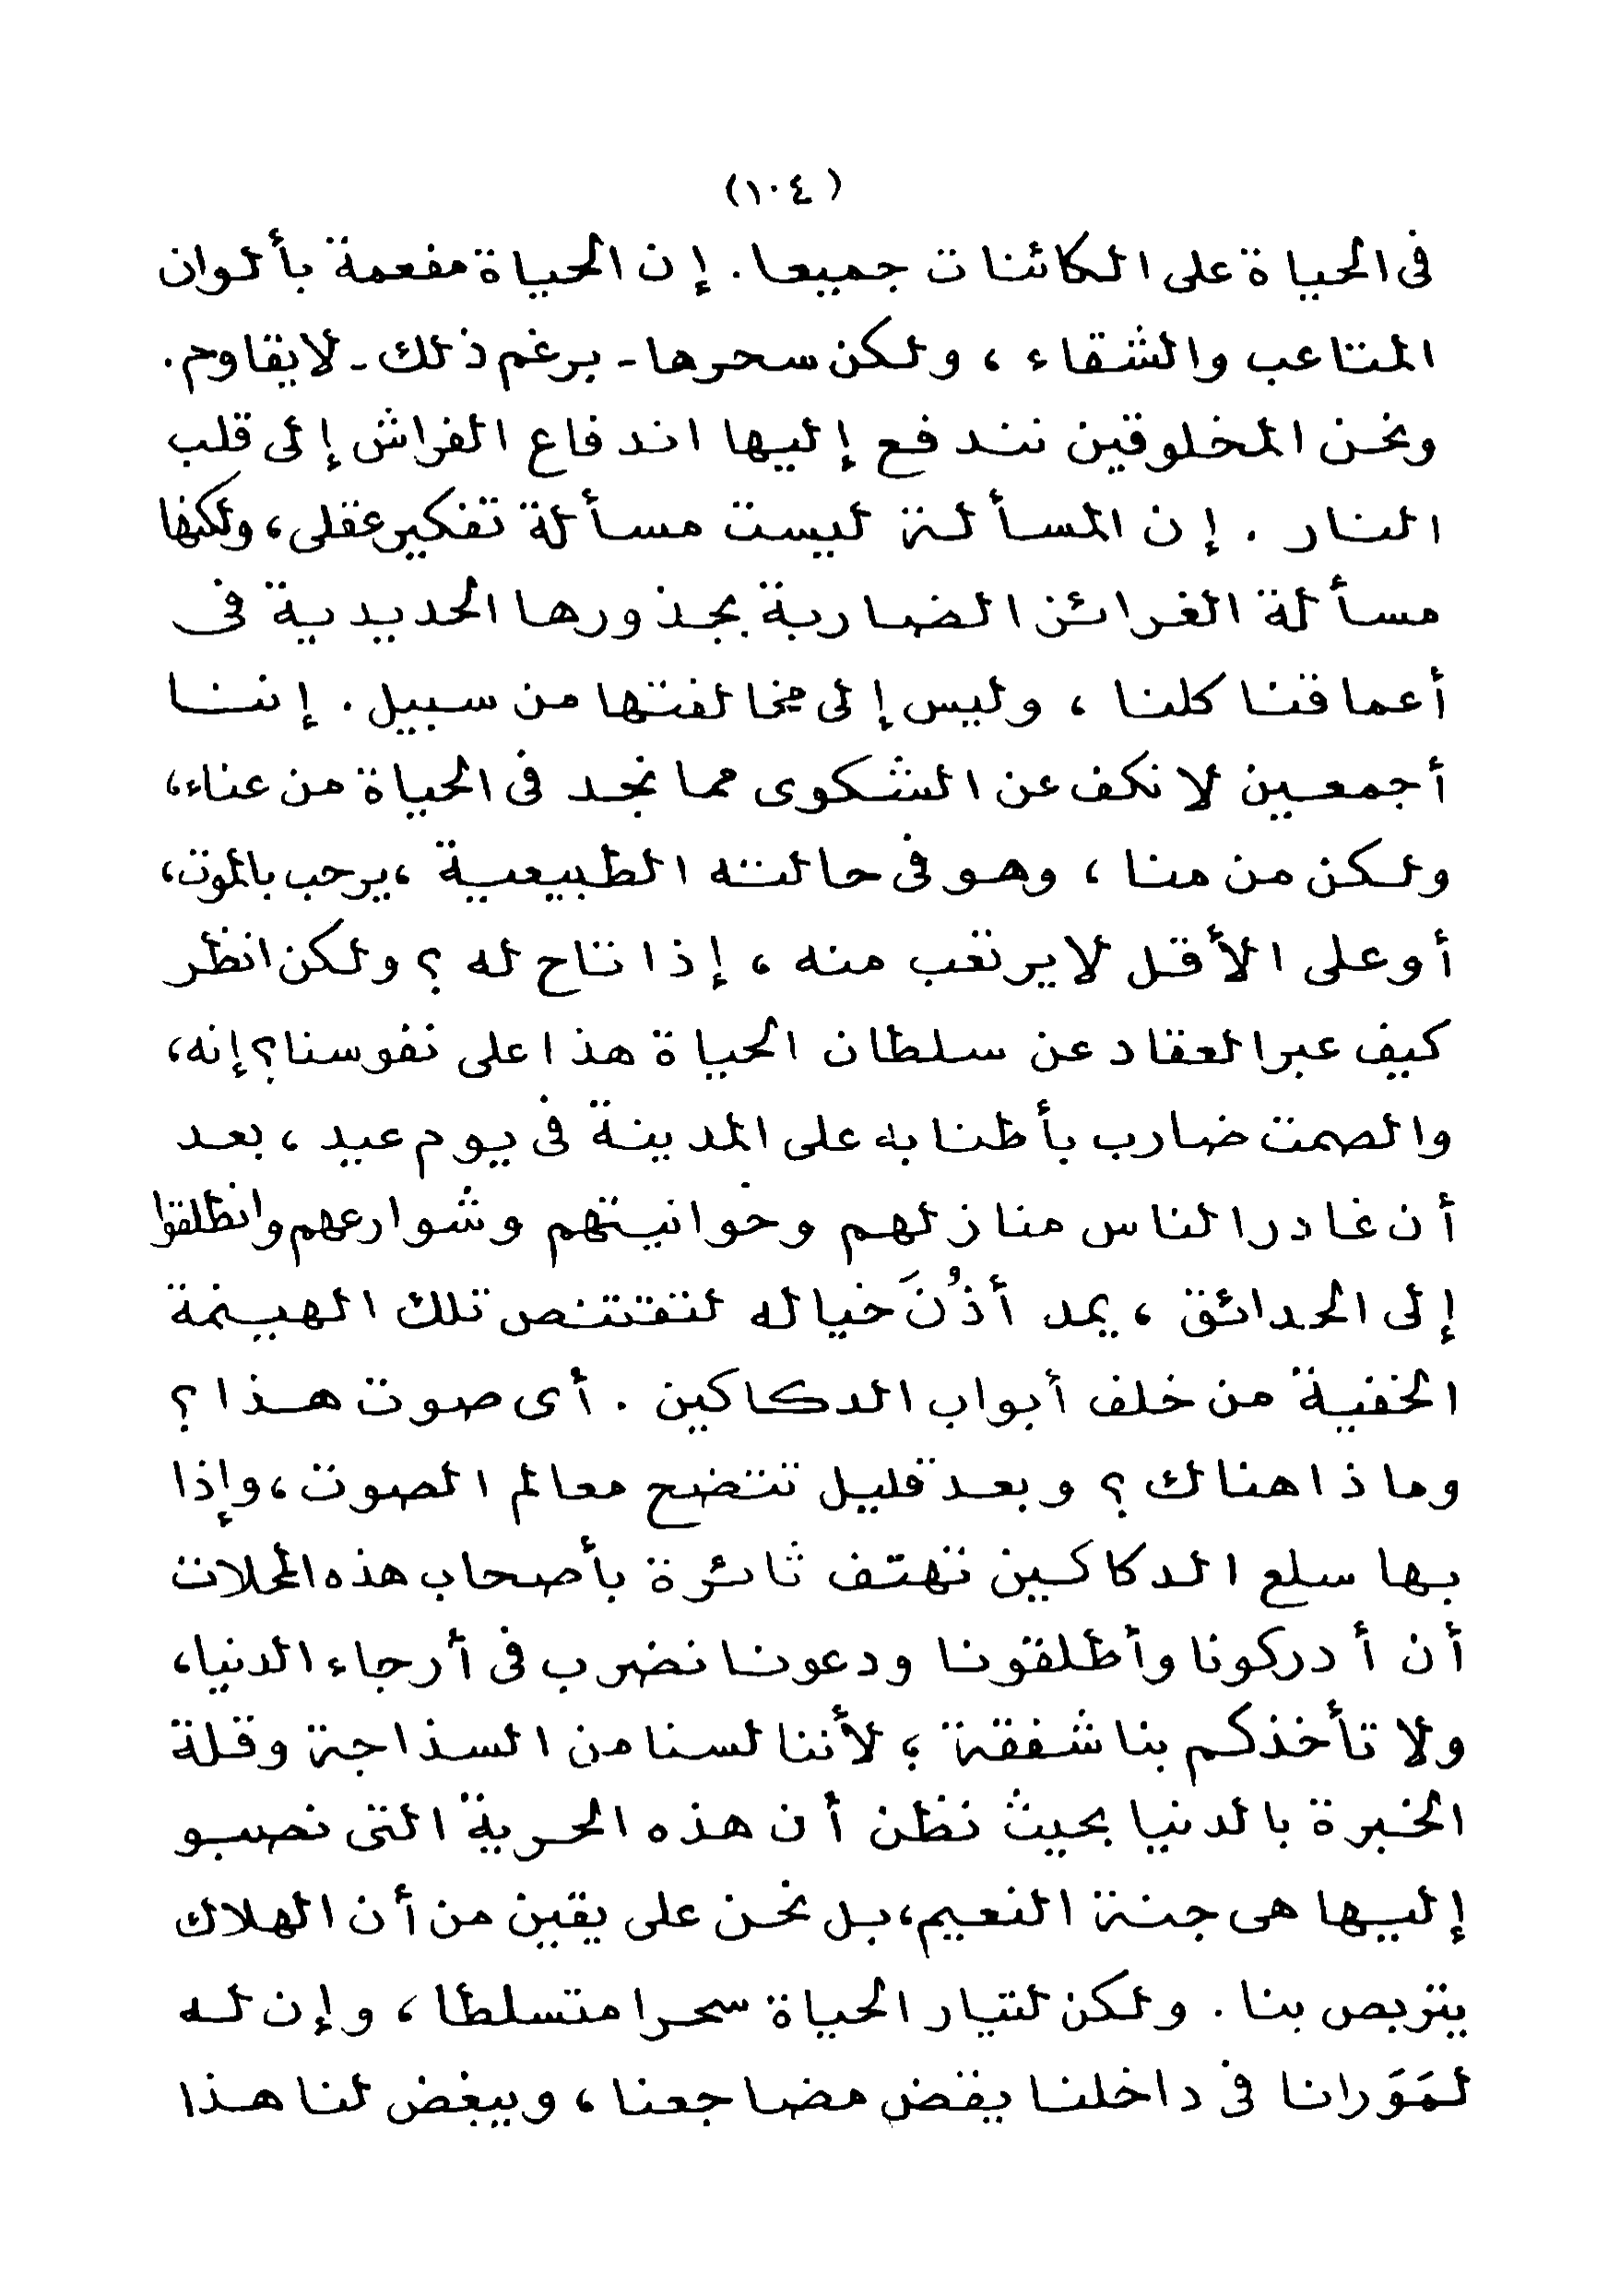 (١٠٤)
فى الحياة على الكائنات جميعا. إن الحياة مفعمة بألوان
المتاعب والشقاء ، ولكن سحرها - برغم ذلك - لايقاوم.
ونحن المخلوقين نندفع إليها اندفاع الفراش إلى قلب
النار . إن المسألة ليست مسألة تفكير عقلى، ولكنها
مسألة الغرائز الضاربة بجذورها الحديدية فى
أعماقنا كلنا ، وليس إلى مخالفتها من سبيل . إننا
أجمعين لا نكف عن الشكوى مما نجد فى الحياة من عناء،
ولكن من منا ، وهو فى حالته الطبيعية ، يرحب بالموت،
أو على الأقل لا يرتعب منه ، إذا تاح له ؟ ولكن انظر
كيف عبر العقاد عن سلطان الحياة هذا على نفوسنا؟ إنه،
والصمت ضارب بأطنابه على المدينة فى يوم عيد ، بعد
أن غادر الناس منازلهم وخوانيتهم وشوارعهم وانطلقوا
إلى الحدائق ، يمد أذُنَ خياله لتقتنص تلك الهينمة
الخفية من خلف أبواب الدكاكين . أى صوت هذا ؟
وماذا هناك ؟ وبعد قليل تتضح معالم الصوت ، وإذا
بها سلع الدكاكين تهتف ثائرة بأصحاب هذه المحلات
أن أدركونا وأطلقونا ودعونا نضرب فى أرجاء الدنيا،
ولا تأخذكم بنا شفقة ؛ لأننا لسنا من السذاجة وقلة
الخبرة بالدنيا بحيث نظن أن هذه الحرية التى نصبو
إليها هى جنة النعيم، بل نحن على يقين من أن الهلاك
يتربص بنا . ولكن لتيار الحياة سحرا متسلطا ، وإن له
لمَوَرانا فى داخلنا يقض مضاجعنا ، ويبغض لنا هذا